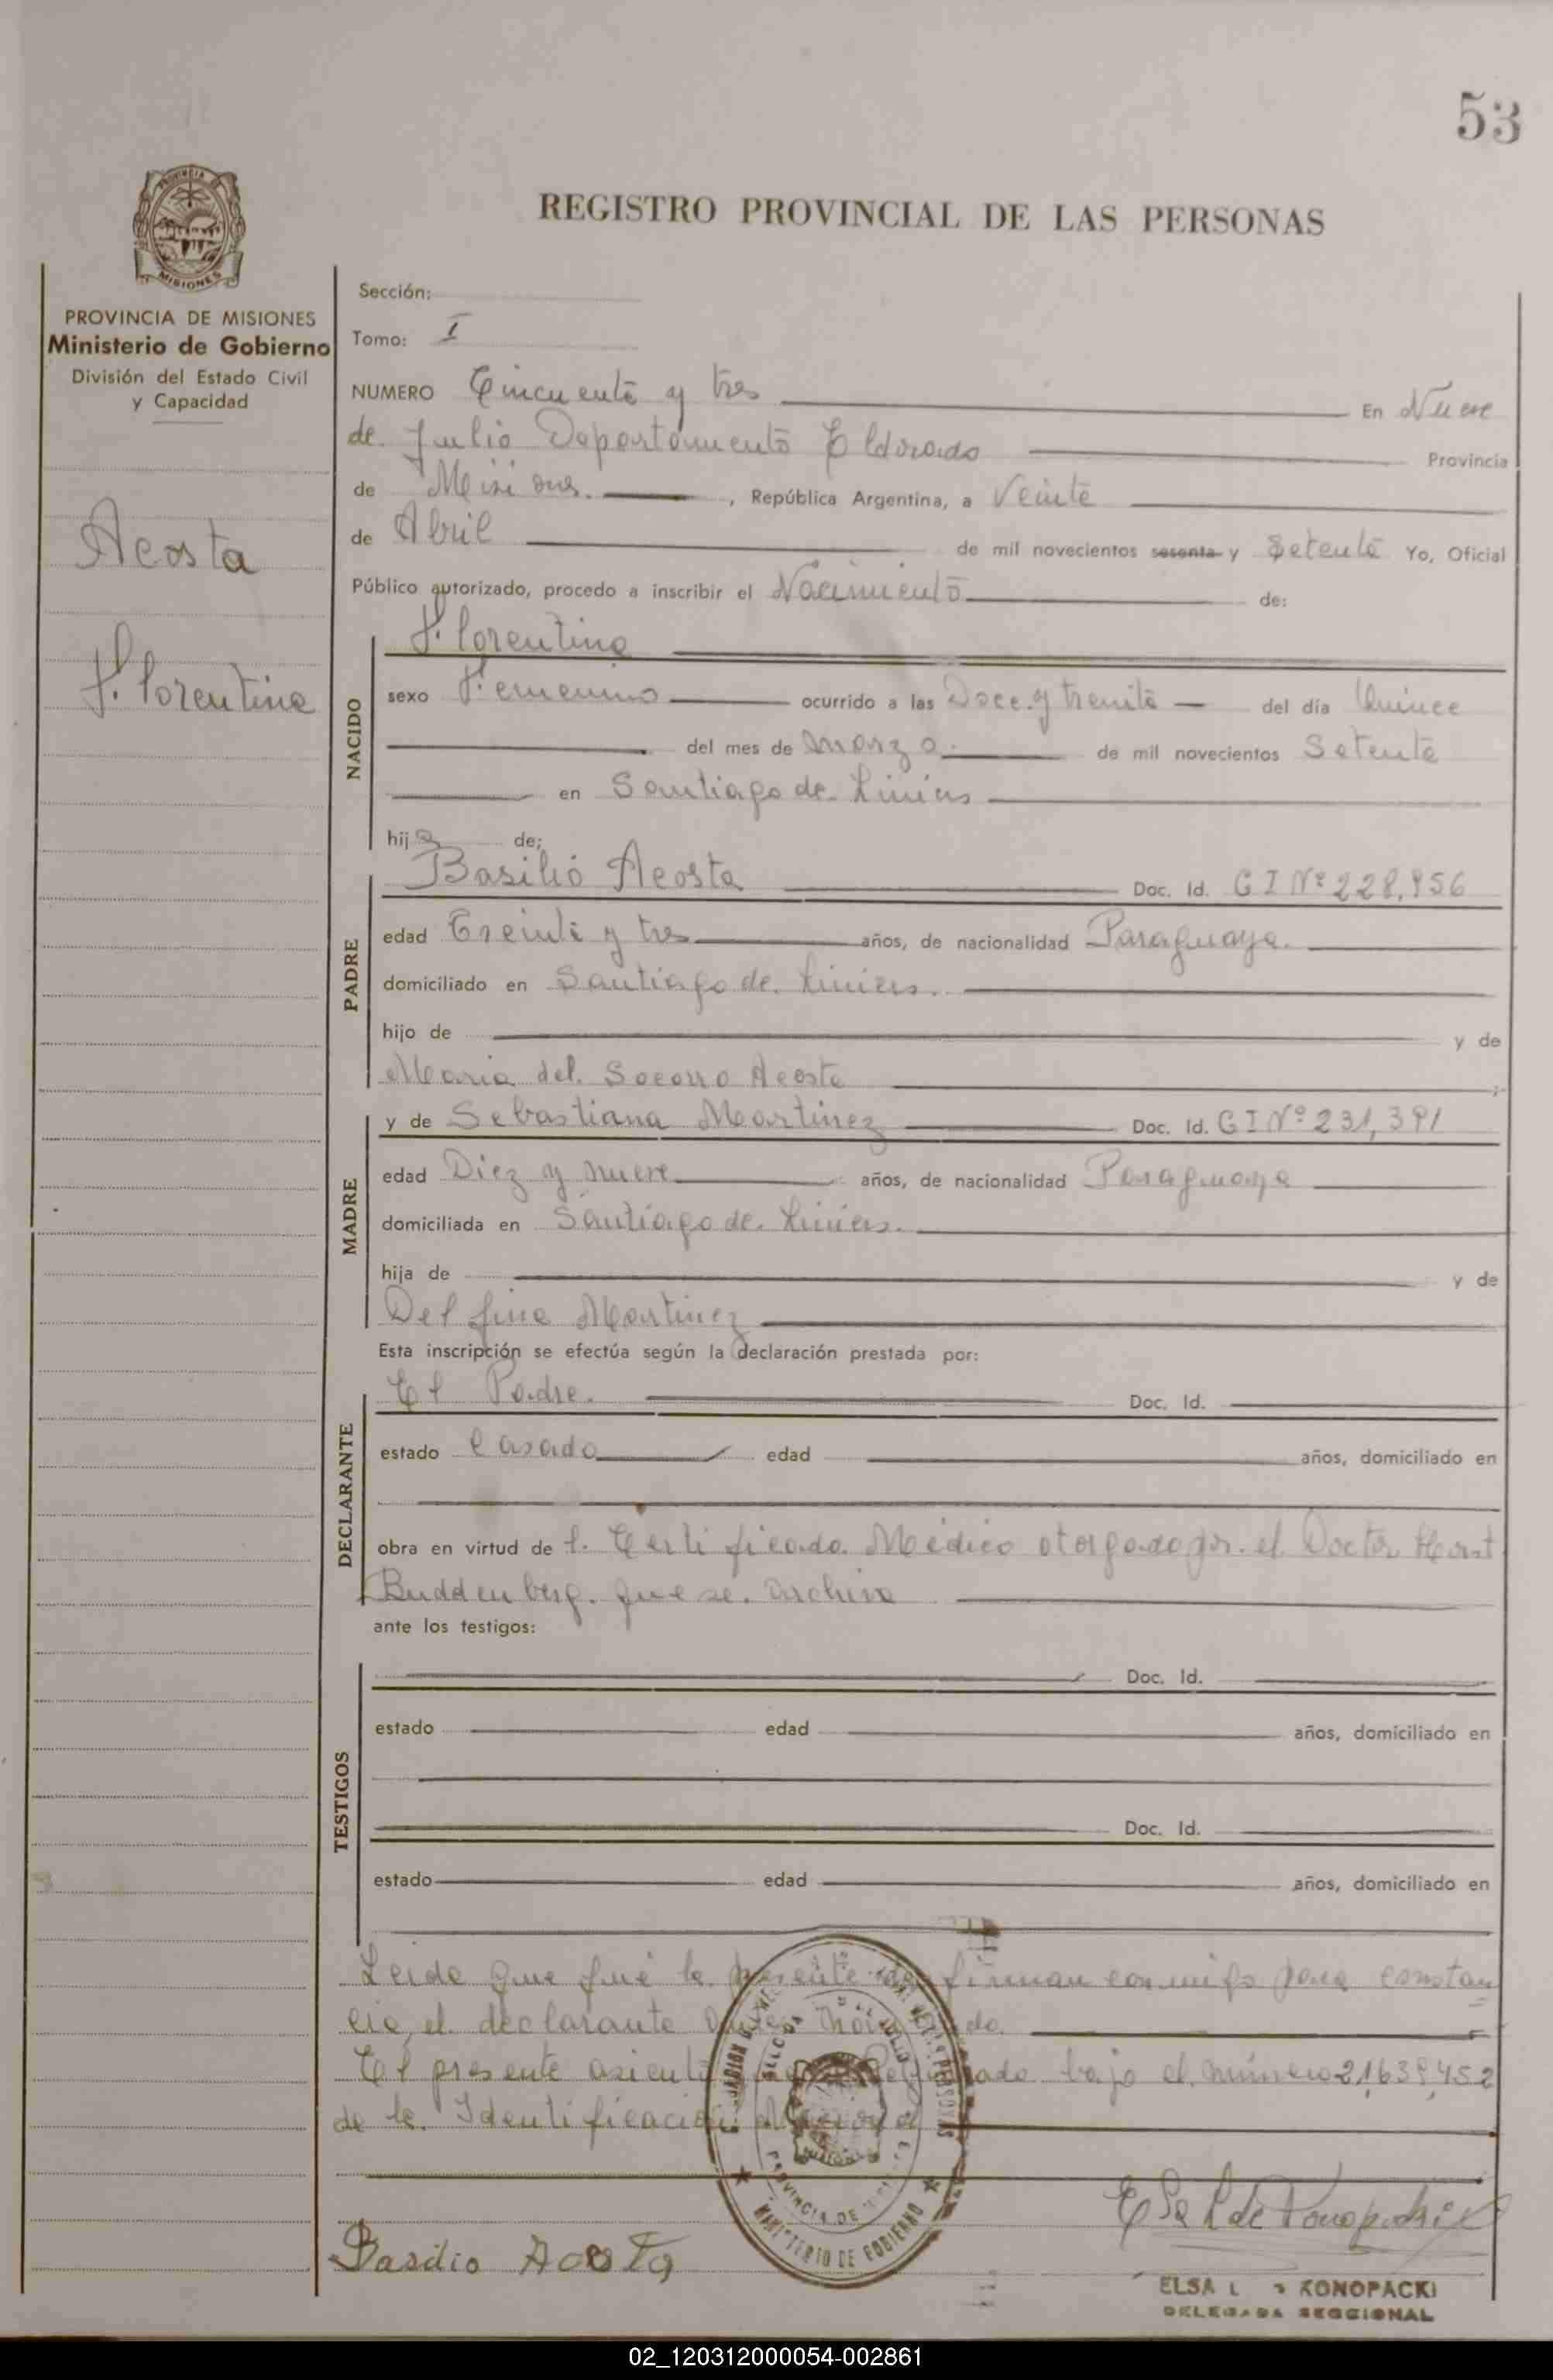 53
REGISTRO PROVINCIAL DE LAS PERSONAS
PROVINCIA DE MISIONES
Ministerio de Gobierno
División del Estado Civil
y Capacidad
Acosta
Florentina
Sección:
Tomo: I
NUMERO Cincuenta y tres En Nueve
de Julio Departamento Eldorado Provincia
de Misiones. , República Argentina, a Veinte
de Abril de mil novecientos sesenta y Setenta Yo, Oficial
Público autorizado, procedo a inscribir el Nacimiento de:
Florentina
NACIDO
sexo Femenino ocurrido a las Doce y treinta del día Quince
del mes de Marzo. de mil novecientos Setenta
en Santiago de Liniers
hija de;
Basilio Acosta Doc. Id. C I Nº 228.956
PADRE
edad Treinta y tres años, de nacionalidad Paraguaya.
domiciliado en Santiago de Liniers.
hijo de y de
Maria del Socorro Acosta ;
y de Sebastiana Martinez Doc. Id. C I Nº 231,391
MADRE
edad Diez y nueve años, de nacionalidad Paraguaya
domiciliada en Santiago de Liniers.
hija de y de
Delfina Martinez
Esta inscripción se efectúa según la declaración prestada por:
El Padre. Doc. Id.
DECLARANTE
estado Casado edad años, domiciliado en
obra en virtud de l. Certificado Médico otorgado por el Doctor Horst
Buddenberg. que se archiva
ante los testigos:
TESTIGOS
Doc. Id.
estado edad años, domiciliado en
Doc. Id.
estado edad años, domiciliado en
Leida que fué la presente la firman conmigo para constan
cia, el declarante
El presente asiento bajo el número 21639452
de la Identificación
MINISTERIO DE GOBIERNO
PROVINCIA DE
Basilio Acosta
ELSA L KONOPACKI
DELEGADA SECCIONAL
02_120312000054-002861